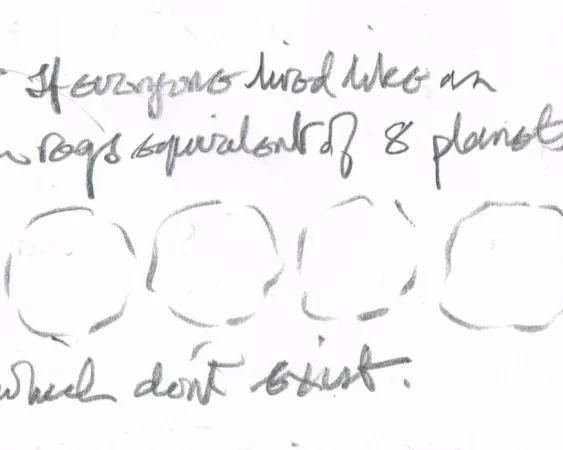 If everyone lived like an
equivalent of 8 planets
which don't exist.